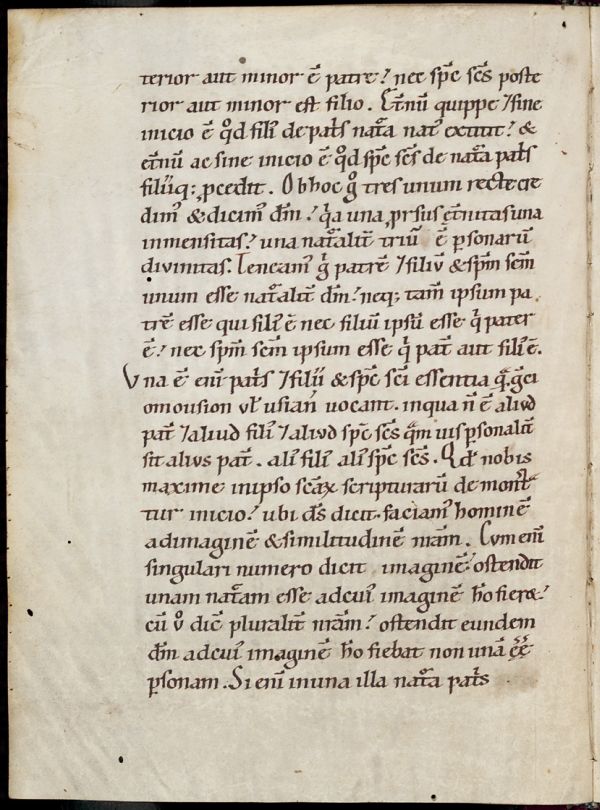 terior aut minor ē patre? nec sp̄c sc̄s poste
rior aut minor est filio. Et̄nū quippe ⁊ sine
inicio ē qd̊ fili᾽ de pat̄s nat̄a nat᾽ extitit? &
et̄nū ac sine inicio ē qd̊ sp̄c sc̄s de nat̄a pat̄s
filiiq; ꝓcedit. Ob hoc gͦ tres unum recte cre
dim᾽ & dicim᾽ dm̄? qͣa una ꝓrsus et̄nitas una
inmensitas? una nat̄alit̄ triū ē ꝑsonarū
divinitas. Teneam᾽ gͥ patrē ⁊ filiū & sp̄m sc̄m
unum esse nat̄alit̄ dm̄? neq; tam̄ ipsum pa
trē esse qui fili᾽ ē nec filiū ipsū esse qͥ pater
ē? nec sp̄m sc̄m ipsum esse qͥ pat̄ aut fili᾽ ē.
Vna ē eni᾽ pat̄s ⁊ filii & sp̄c sc̄i essentia qͣ ḡci
omousion vł usian̄ uocant. in qua n̄ ē aliud
pat̄ ⁊ aliud fili᾽ ⁊ aliud sp̄c sc̄s qͣm uis ꝑsonalit̄
sit alius pat̄. ali᾽ fili᾽ ali᾽ sp̄c sc̄s. Qd̄ nobis
maxime in ipso sc̄aꝝ scripturarū demonst̄
tur inicio? ubi ds̄ dicit. faciam᾽ hominē
ad imaginē & similitudinē nr̄am. Cum eni᾽
singulari numero dicit imaginē? ostendit
unam nat̄am esse ad cui᾽ imaginē ho᾽ fier&?
cū vͦ dic̄ pluralit̄ nr̄am? ostendit eundem
dm̄ ad cui᾽ imaginē ho᾽ fiebat non unā ee᾽
ꝑsonam. Si eni᾽ in una illa nat̄a pat̄s